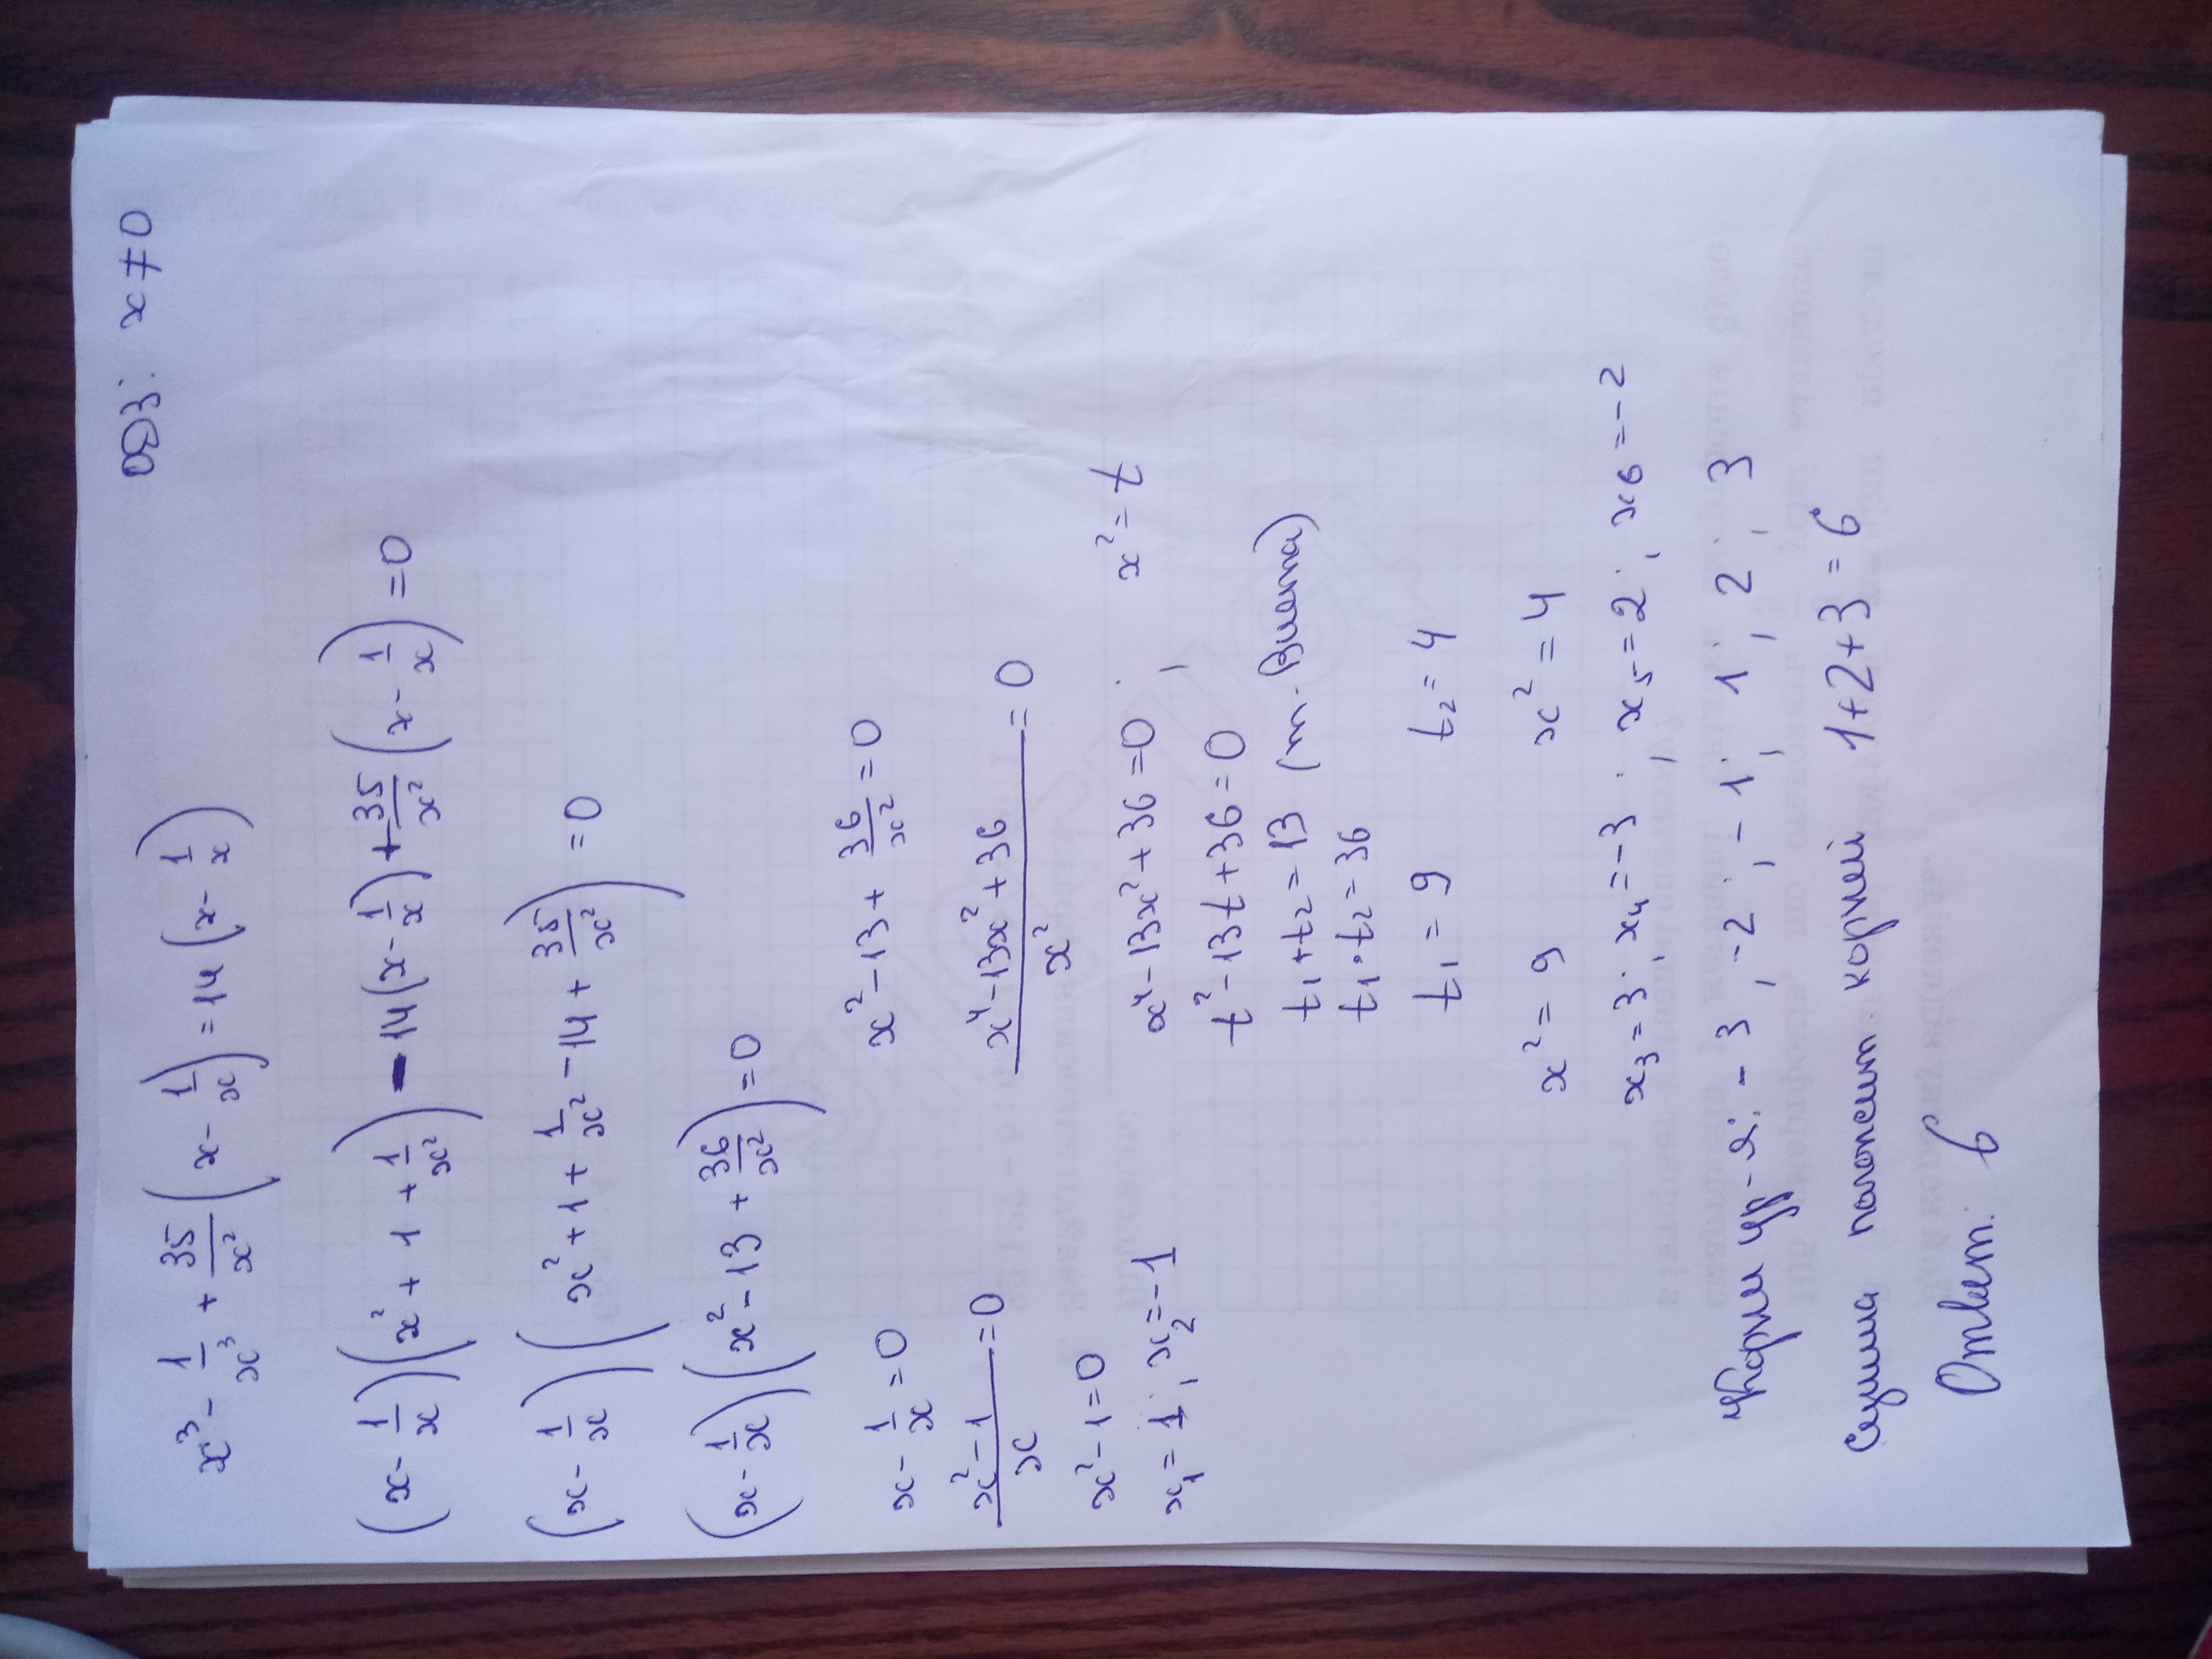 ОДЗ: x ≠ 0
x³ - 1/x³ + 35/x² (x - 1/x) = 14 (x - 1/x)
(x - 1/x)(x² + 1 + 1/x²) - 14(x - 1/x) + 35/x² (x - 1/x) = 0
(x - 1/x)(x² + 1 + 1/x² - 14 + 35/x²) = 0
(x - 1/x)(x² - 13 + 36/x²) = 0
x - 1/x = 0
(x² - 1)/x = 0
x² - 1 = 0
x₁ = 1; x₂ = -1
x² - 13 + 36/x² = 0
(x⁴ - 13x² + 36)/x² = 0
x⁴ - 13x² + 36 = 0, x² = t
t² - 13t + 36 = 0
t₁ + t₂ = 13 (т. Виета)
t₁ · t₂ = 36
t₁ = 9 t₂ = 4
x² = 9 x² = 4
x₃ = 3; x₄ = -3; x₅ = 2; x₆ = -2
Корни ур-я: -3; -2; -1; 1; 2; 3
Сумма положит. корней 1+2+3=6
Ответ. 6